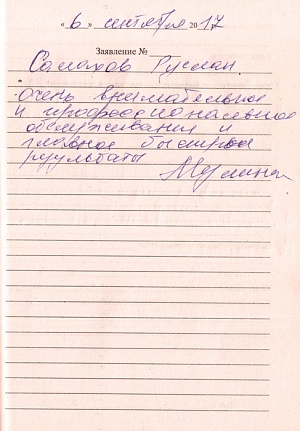 « 6 » сентября 2017
Заявление №
Салахов Руслан.
очень внимательное
и професс иональное
обслуживания и
главное быстрые
результаты